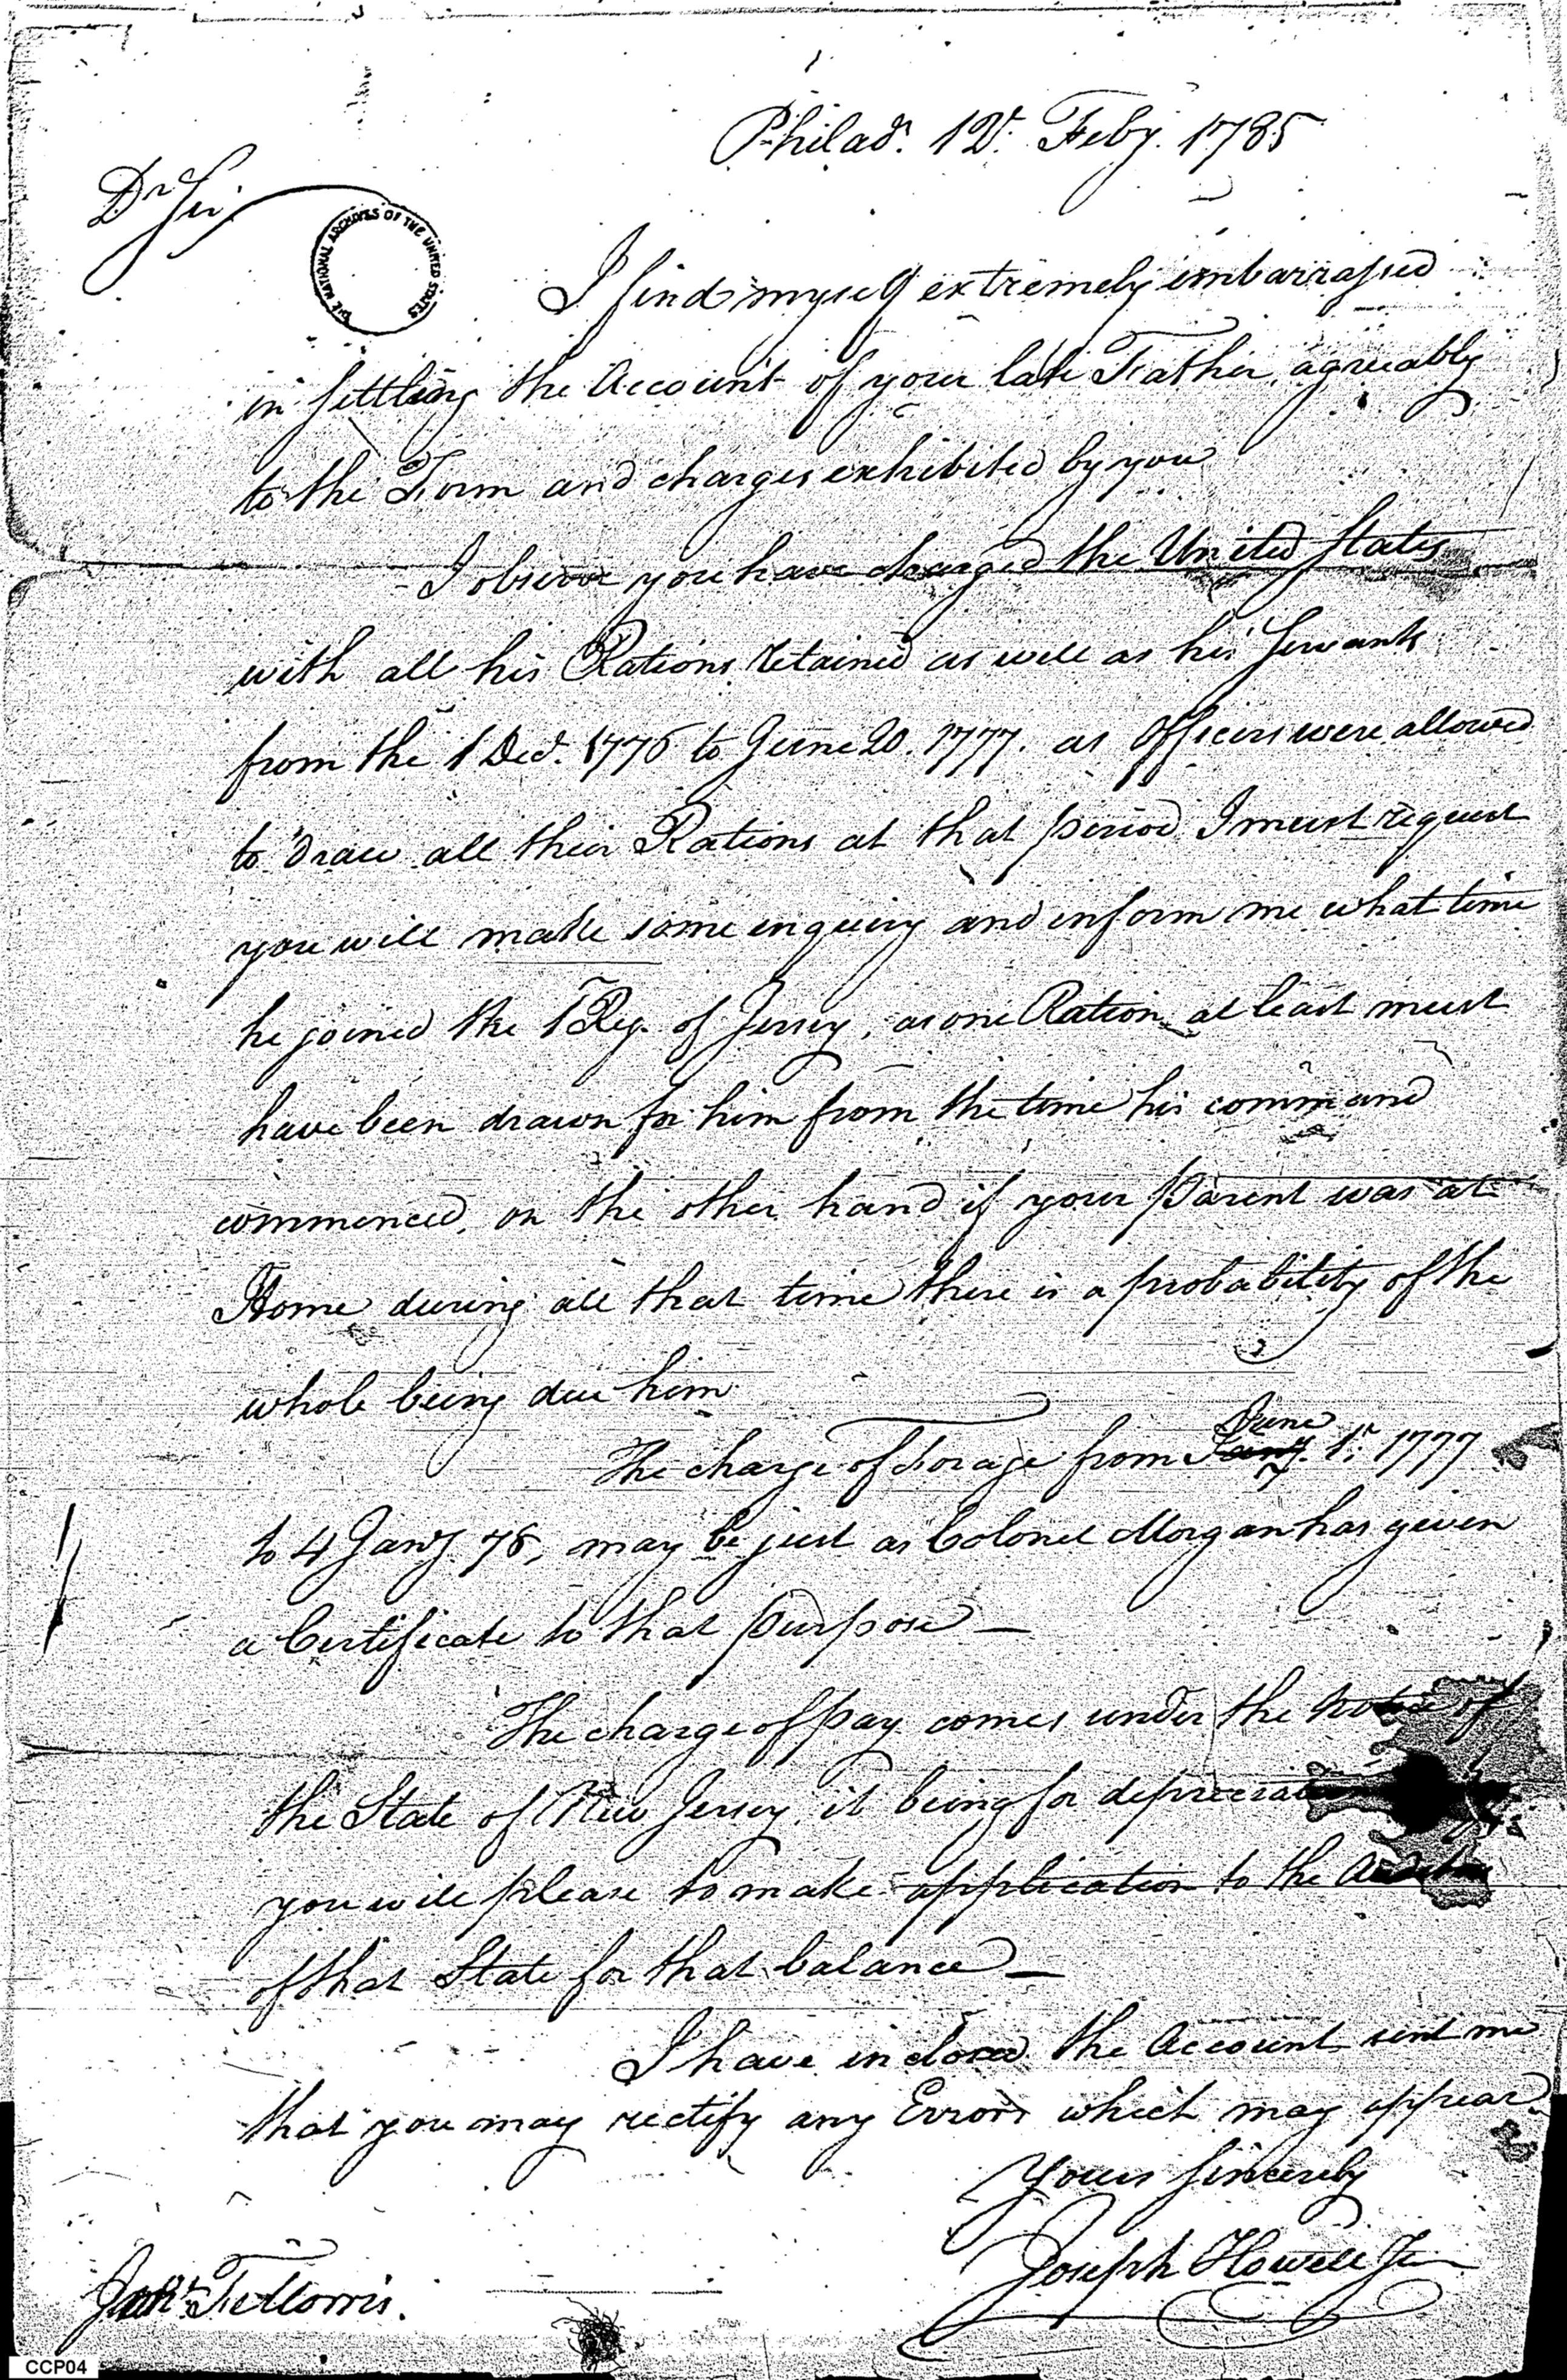 Philad.ᵃ 12.ᵗ Feby. 1785
Dʳ Sir
THE NATIONAL ARCHIVES OF THE UNITED STATES
I find myself extremely embarrassed
in settling the Account of your late Father, agreeably
to the Form and charges exhibited by you
I observe you have charged the United States
with all his Rations retained as well as his Servants
from the 1 Decr. 1776 to June 20. 1777. as Officers were allowed
to draw all their Rations at that period I must request
you will make some enquiry and inform me what time
he joined the 1 Reg. of Jersey, as one Ration at least must
have been drawn for him from the time his command
commenced, on the other hand if your Parent was at
Home during all that time there is a probability of the
whole being due him
June
The charge of Forage from Jany. 1.ˢᵗ 1777
to 4 Jany 78, may be just as Colonel Morgan has given
a Certificate to that purpose —
The charge of pay comes under the notice of
the State of New Jersey, it being for depreciation
you will please to make application to the
of that State for that balance —
I have inclosed the Account sent me
that you may rectify any Errors which may appear
Yours Sincerely
Joseph Howell Jr
CCP04